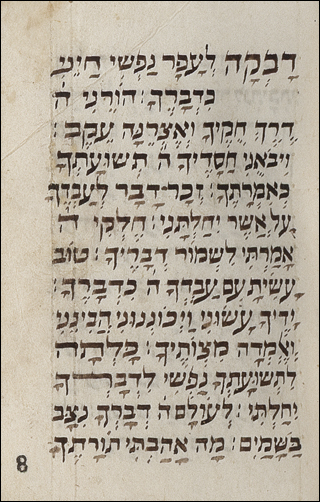 דָּבְקָה לֶעָפָר נַפְשִׁי חַיֵּנִי
כִּדְבָרֶךָ: הוֹרֵנִי ה
דֶּרֶךְ חֻקֶּיךָ וְאֶצְּרֶנָּה עֵקֶב:
וִיבֹאֻנִי חֲסָדֶיךָ ה תְּשׁוּעָתְךָ
כְּאִמְרָתֶךָ: זְכָר־דָּבָר לְעַבְדֶּךָ
עַל אֲשֶׁר יִחַלְתָּנִי: חֶלְקִי ה
אָמַרְתִּי לִשְׁמוֹר דְּבָרֶיךָ: טוֹב
עָשִׂיתָ עִם עַבְדְּךָ ה כִּדְבָרֶךָ:
יָדֶיךָ עָשׂוּנִי וַיְכוֹנְנוּנִי הֲבִינֵנִי
וְאֶלְמְדָה מִצְוֹתֶיךָ: כָּלְתָה
לִתְשׁוּעָתְךָ נַפְשִׁי לִדְבָרְךָ
יִחָלְתִּי: לְעוֹלָם ה דְּבָרְךָ נִצָּב
בַּשָּׁמָיִם: מָה אָהַבְתִּי תוֹרָתֶךָ
8